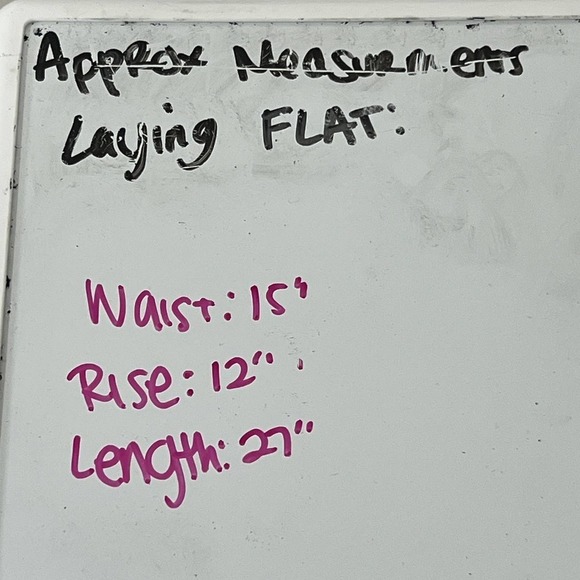 Approx Measurments
Laying FLAT:
Waist: 15"
Rise: 12"
Length: 27"